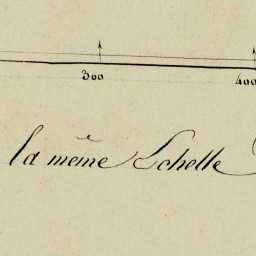 300 400
la même Echelle